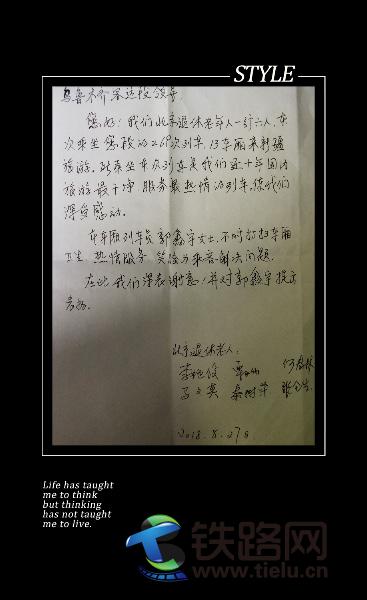 STYLE
乌鲁木齐客运段领导：
您好！我们北京退休老年人一行六人，本
次乘坐您段的
车厢来新疆
旅游。
列车是我们近十年国内
旅游最干净 服务最热情的列车，使我们
深受感动。
本车厢列车员郭鑫宇女士，不时打扫车厢
卫生，热情服务
解决问题。
在此我们深表谢意！并对郭鑫宇提出
表扬。
北京退休老人：
2018.8.27日
Life has taught
me to think
but thinking
has not taught
me to live.
铁路网
www.tielu.cn